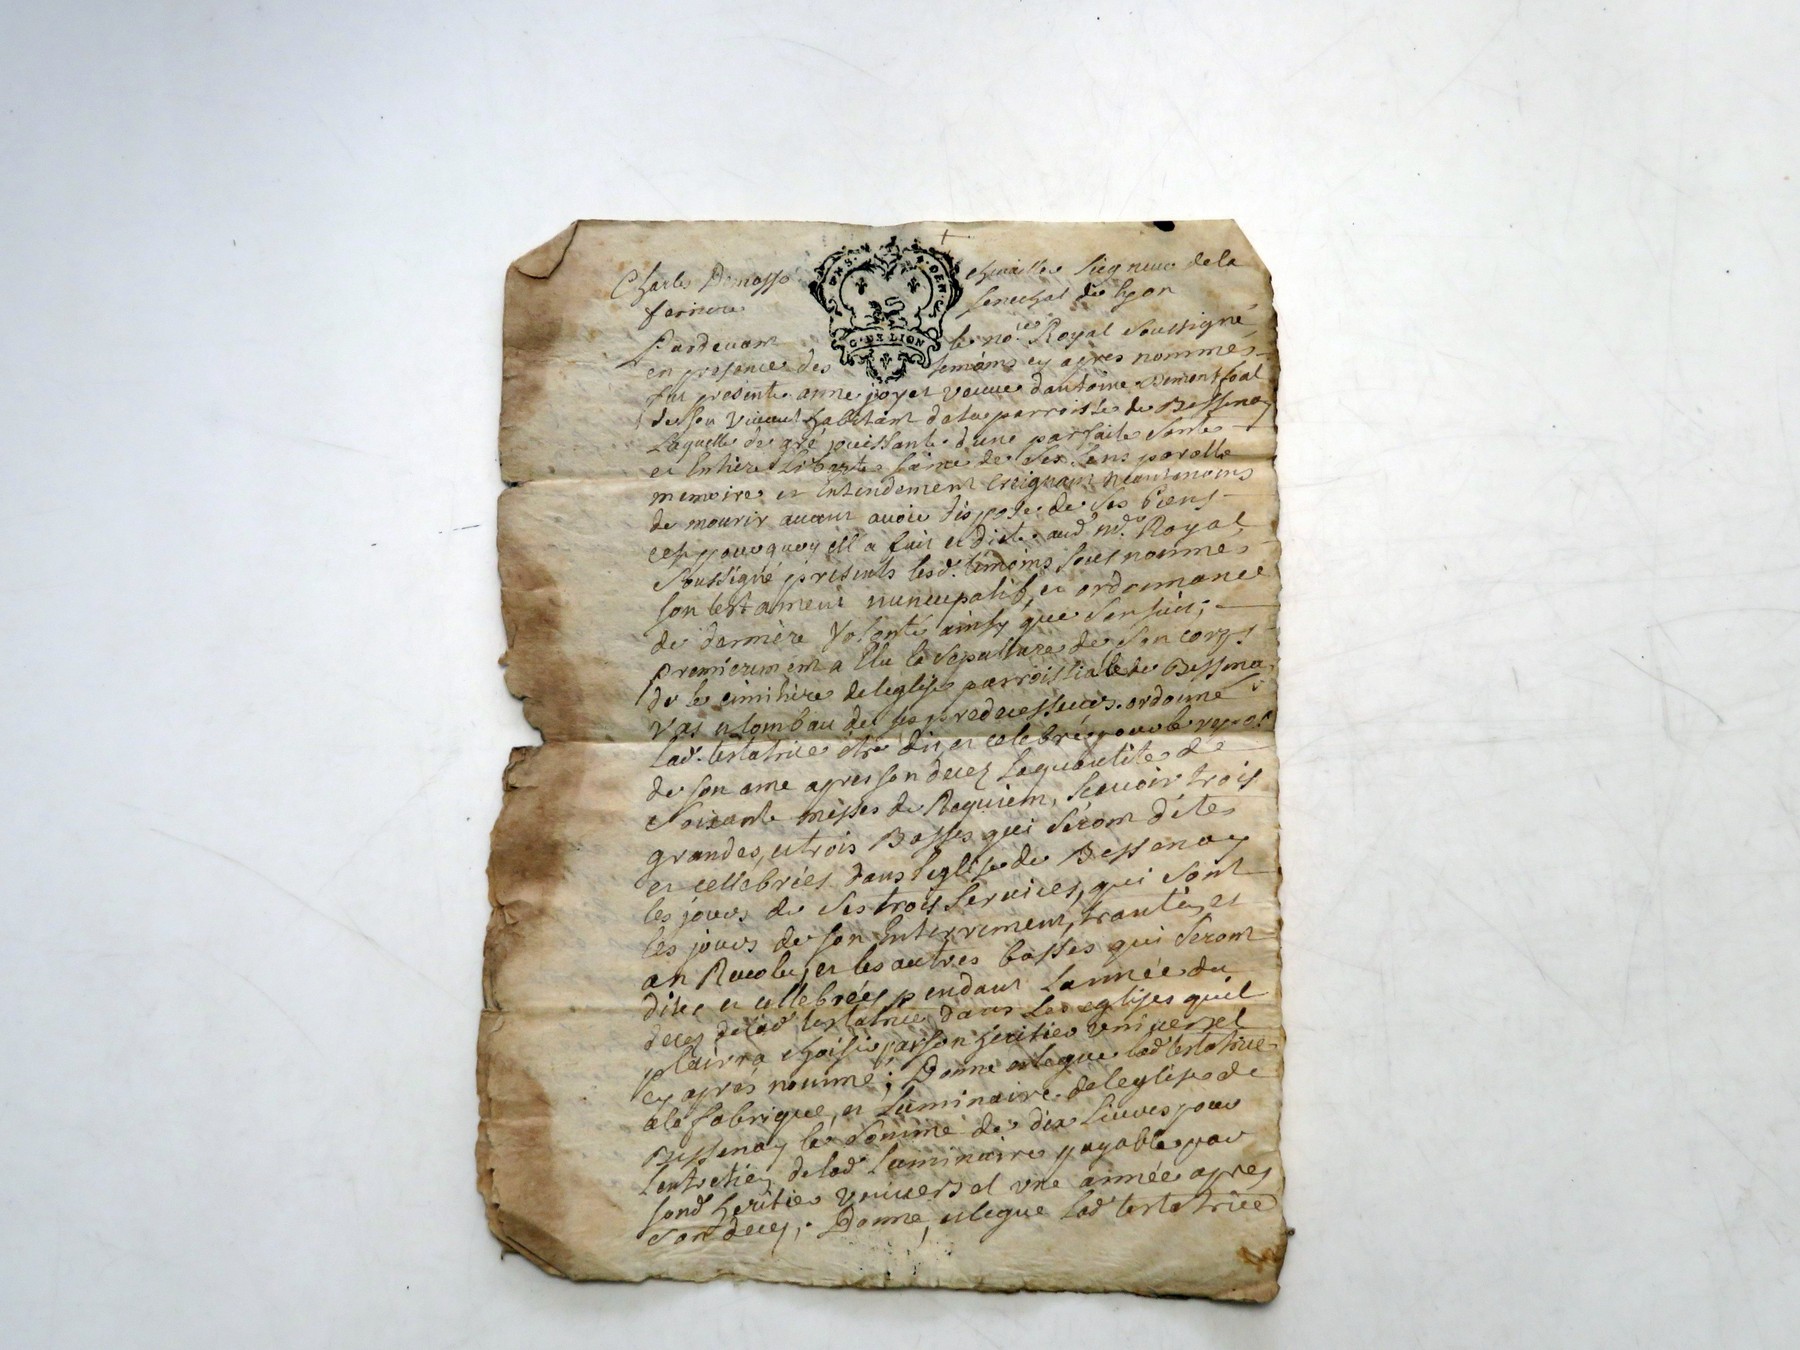 Charles Demasso chevallier Seigneur de la
ferriere senechal de lyon
Pardevant le no.re Royal Soussigné
en presence des temoins cy apres nommés
fut presente anne joyet veuve dantoine
de son vivant habitant de la parroisse de Bessenay
Laquelle de gré jouissante d'une parfaite santé
et Entiere Liberté saine de ses sens parolle
memoire et Entendement Creignant neantmoins
de mourir avant avoir disposé de ses biens
cest pourquoy ell a fait et dicté aud. no.re Royal
Soussigné presents lesd. temoins sous nommés
son testament nuncupatif et ordonnance
de derniere Volonté ainsy que sensuit;
premierement a Elu la sepulture de son corps
de le cimitiere de leglise parroissiale de Bessenay
Vas et tombau de ses predecesseurs. ordonne
lad. testatrice être dit et celebré pour le repos
de son ame apres son decez la quantité de
Soixante messes de Requiem, scavoir trois
grandes, et trois Basses qui seront dites
et cellebrées dans leglise de Bessenay
les jours de ses trois services, qui sont
les jours de son Enterrement, trantin, et
an Revolu, et les autres basses qui seront
dites et cellebrées pendant lannée du
decez de lad. testatrice dans les eglises quil
plairra choisir par son heritier universel
cy après nommé; Donne et legue lad. testatrice
a la fabrique, et Luminaire de leglise de
Bessenay la somme de dix Livres pour
lentretien de lad. Luminaire payable par
sond. heritier universel une année apres
son decez; Donne, et legue lad. testatrice
G. DE LION